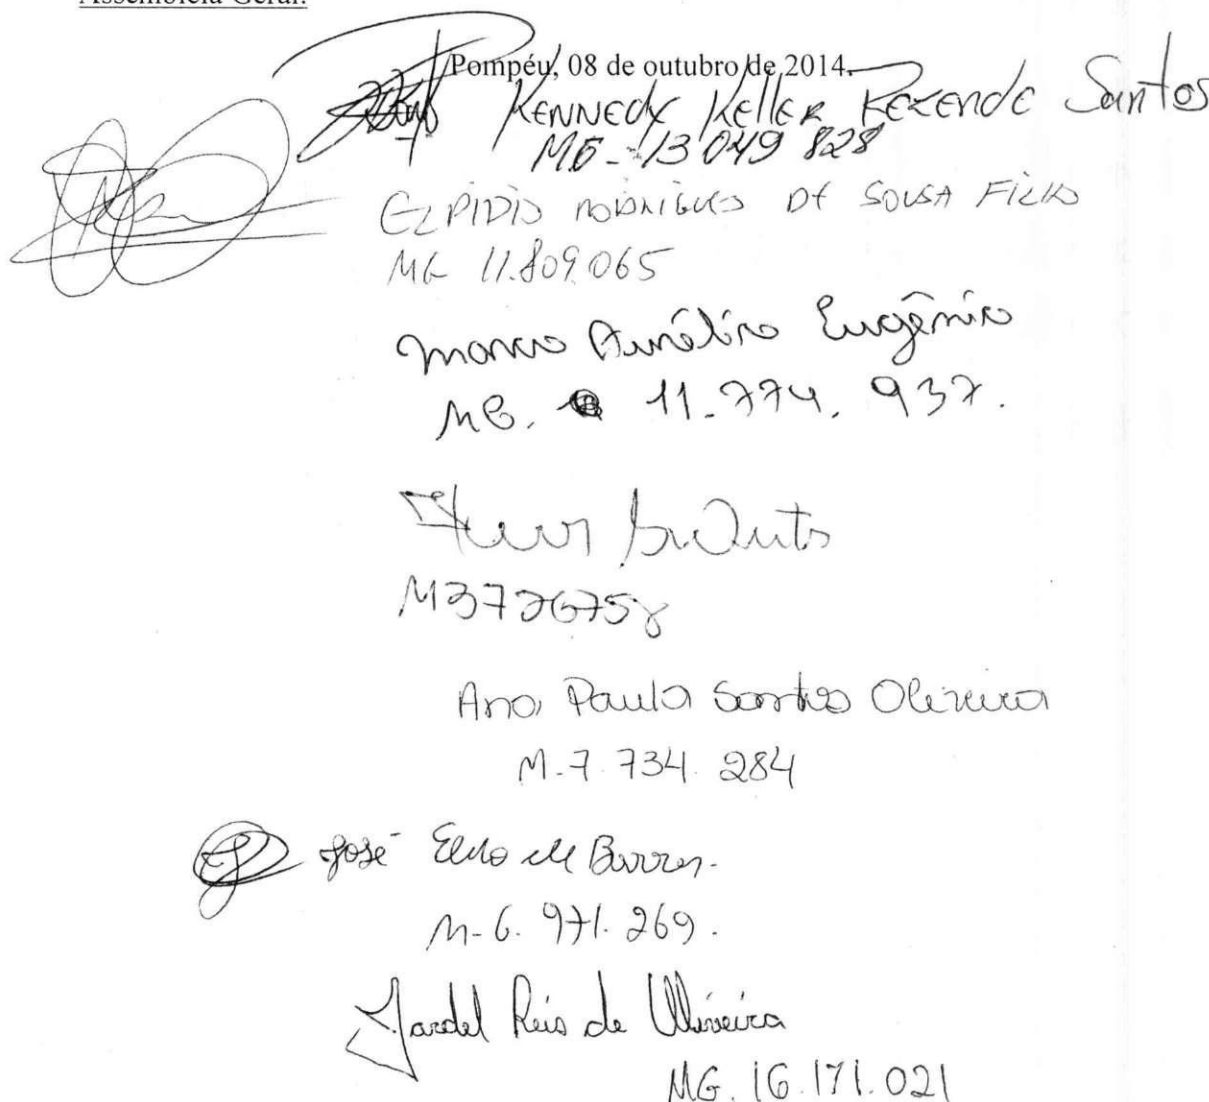 Assembleia Geral.
Pompéu, 08 de outubro de 2014.
KENNEDY KELLER REZENDE Santos
MG-13 049 828
ELPIDIO RODRIGUES DE SOUSA FILHO
MG 11.809.065
Marco Aurélio Eugênio
MG. 11.774.937.
M3726758
Ana Paula Santos Oliveira
M-7.734.284
José Elmo de Barros.
M-6.971.269.
Jardel Reis de Oliveira
MG.16.171.021